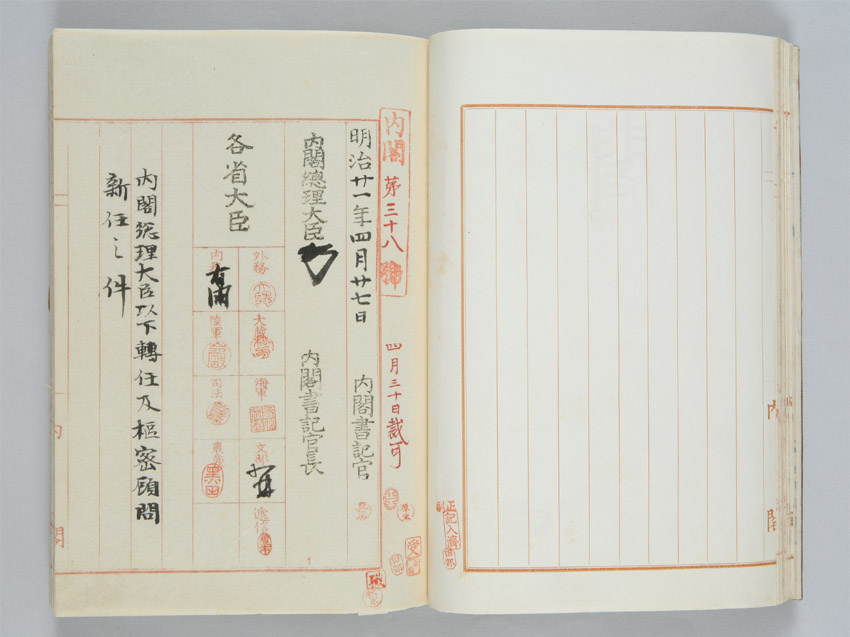 正記入済
内閣
内閣第三十八號
四月三十日裁可
明治廿一年四月廿七日
内閣書記官
内閣總理大臣
内閣書記官長
各省大臣
外務
大蔵
海軍
文部
遞信
内務
陸軍
司法
農商
黒田
内閣総理大臣以下轉任及樞密顧問
新任之件
内閣
受